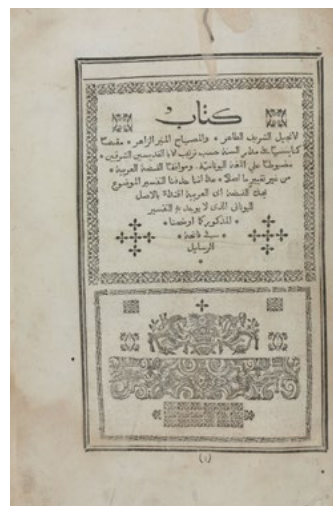 كتاب
الانجيل الشريف الطاهر * والمصباح المنير الزاهر * مقسمًا
كنايسيًا على مدار السنة حسب ترتيب الابا القديسين الشرقيين *
مضبوطًا على اللغة اليونانية * وموافقًا النسخة العربية *
من غير تغيير ما اصلًا * ما اننا حذفنا التفسير الموضوع
في النسخة اى العربية اقتداءً بالاصل
اليوناني الذى لا يوجد به التفسير
* المذكور كما اوضحنا *
في فاتحة *
الرسايل
*
(١)